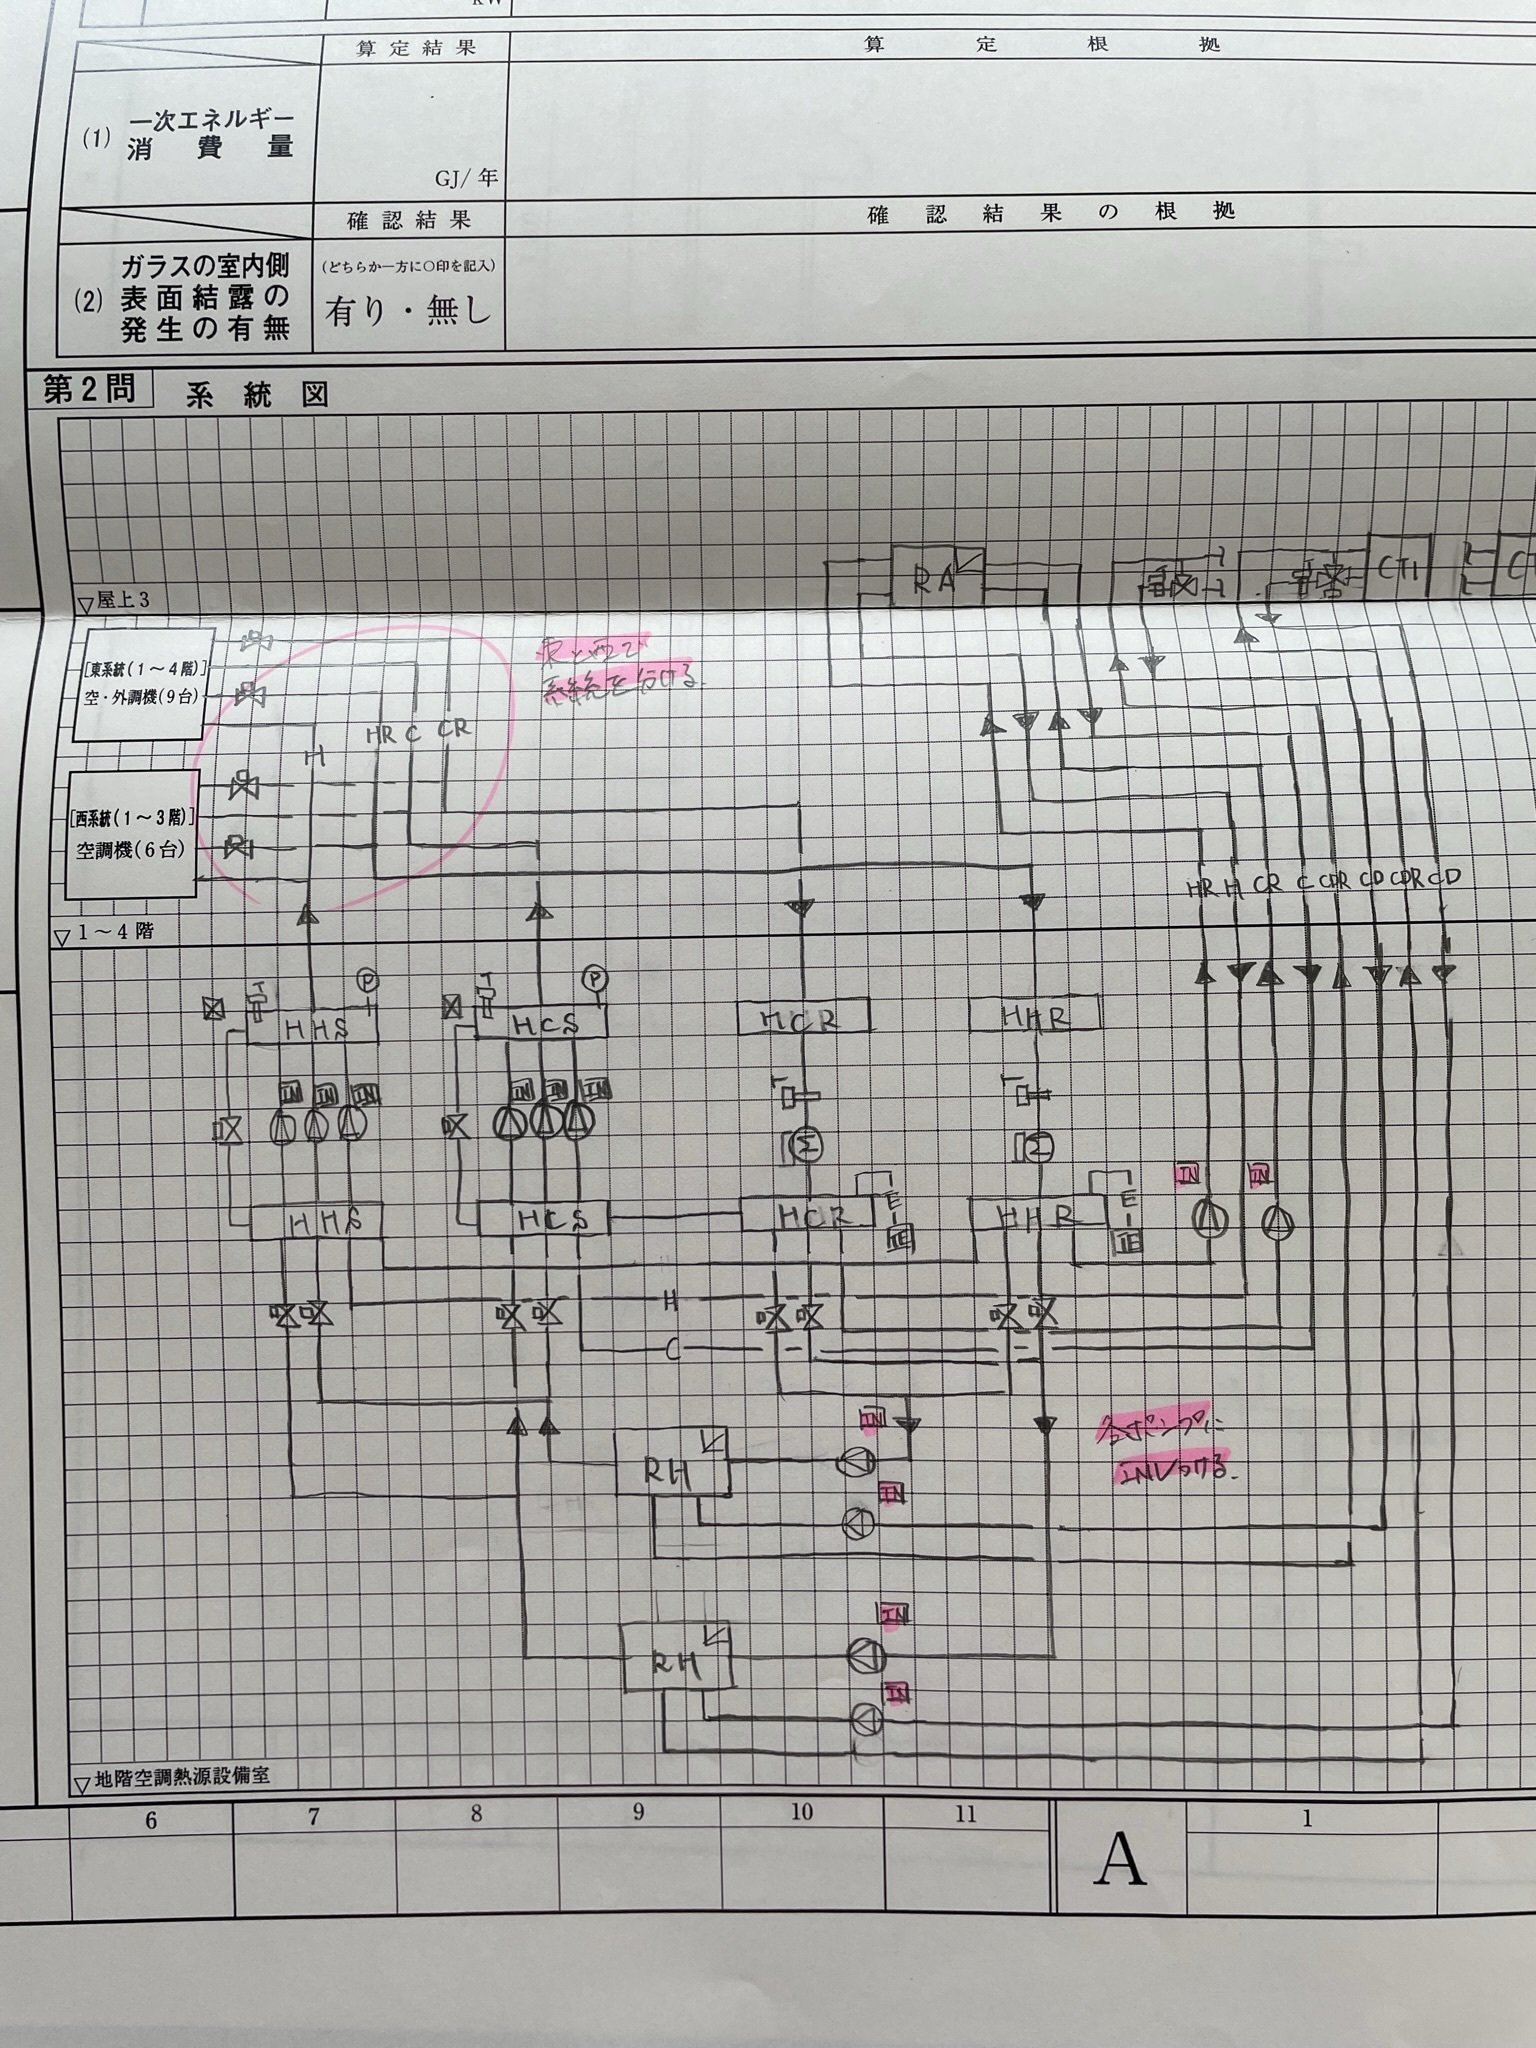 kW
算定結果
算定根拠
(1) 一次エネルギー
消費量
GJ/年
確認結果
確認結果の根拠
(2) ガラスの室内側
表面結露の
発生の有無
(どちらか一方に○印を記入)
有り・無し
第2問 系統図
RA
CT1
▽屋上3
[東系統(1～4階)]
空・外調機(9台)
東と西で
系統を分ける。
H
HR C CR
[西系統(1～3階)]
空調機(6台)
HR H CR C CDR CD CDR CD
▽1～4階
T
P
T
P
HHS
HCS
HCR
HHR
T
T
IN
IN
IN
IN
IN
IN
Σ
Σ
IN
IN
HHS
HCS
HCR
E
HHR
E
H
C
IN
各ポンプに
INVつける。
RH
IN
IN
RH
IN
▽地階空調熱源設備室
6
7
8
9
10
11
A
1